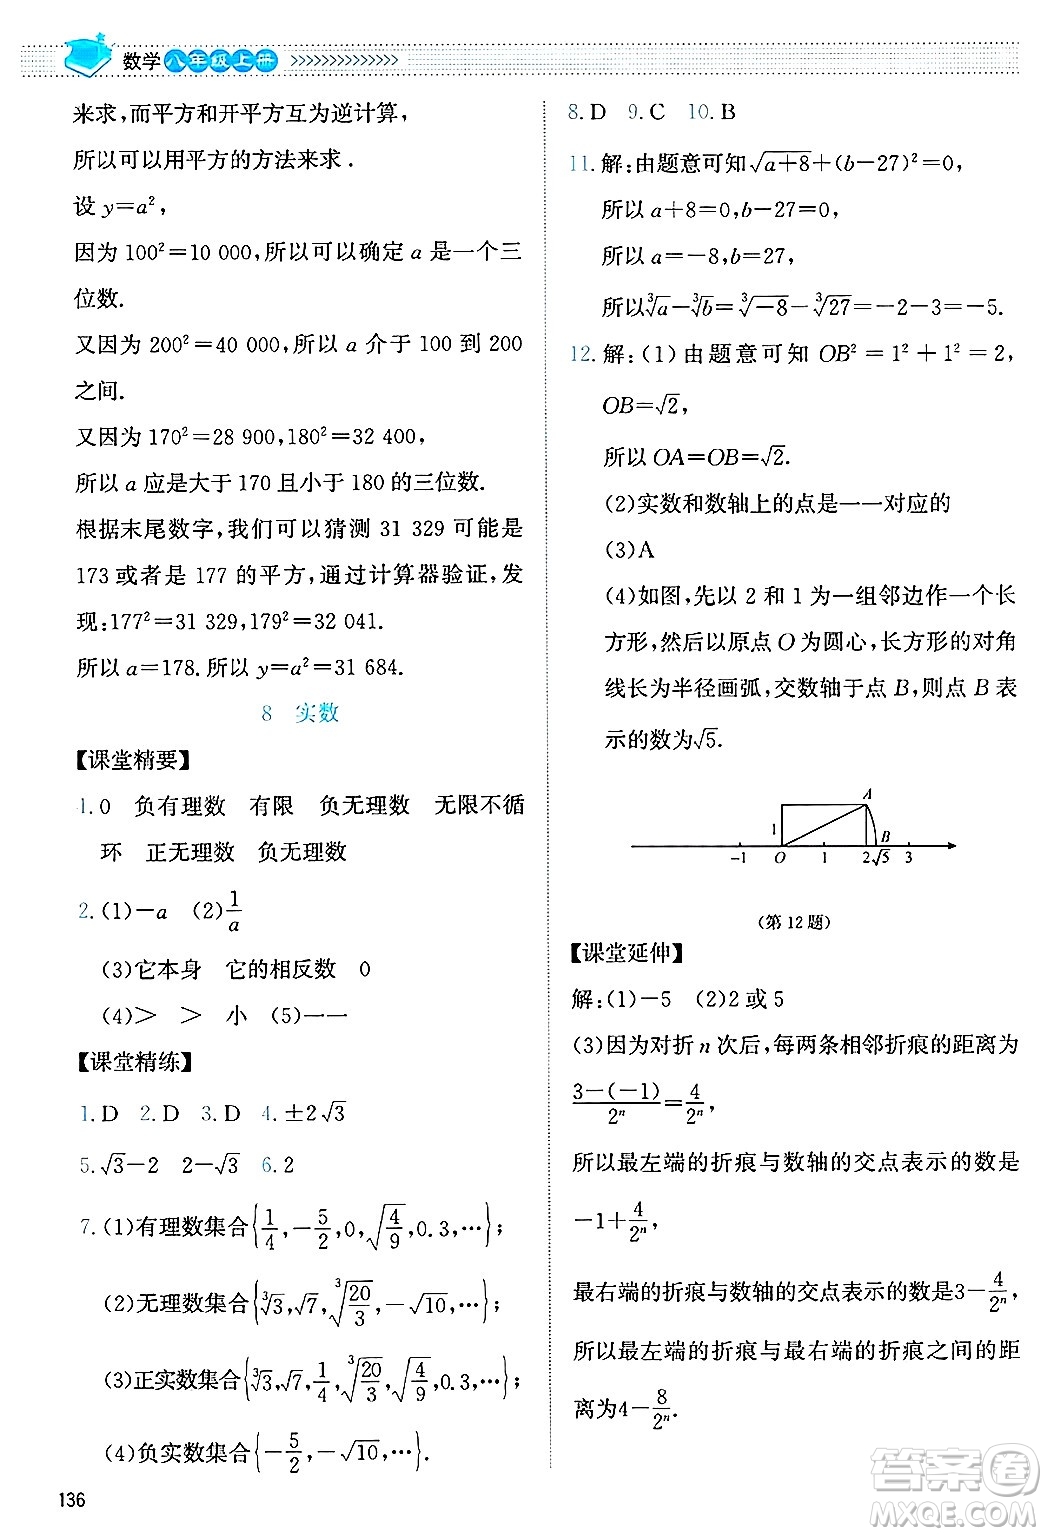 数学八年级上册
来求,而平方和开平方互为逆计算,
所以可以用平方的方法来求.
设 y=a²,
因为 100²=10 000,所以可以确定 a 是一个三
位数.
又因为 200²=40 000,所以 a 介于 100 到 200
之间.
又因为 170²=28 900,180²=32 400,
所以 a 应是大于 170 且小于 180 的三位数.
根据末尾数字,我们可以猜测 31 329 可能是
173 或者是 177 的平方,通过计算器验证,发
现:177²=31 329,179²=32 041.
所以 a=178.所以 y=a²=31 684.
8 实数
【课堂精要】
1.0 负有理数 有限 负无理数 无限不循
环 正无理数 负无理数
2.(1)-a (2)1/a
(3)它本身 它的相反数 0
(4)> > 小 (5)一一
【课堂精练】
1.D 2.D 3.D 4.±2√3
5.√3-2 2-√3 6.2
7.(1)有理数集合{1/4,-5/2,0,√(4/9),0.3,…};
(2)无理数集合{∛3,√7,∛(20/3),-√10,…};
(3)正实数集合{∛3,√7,1/4,∛(20/3),√(4/9),0.3,…};
(4)负实数集合{-5/2,-√10,…}.
136
8.D 9.C 10.B
11.解:由题意可知√(a+8)+(b-27)²=0,
所以 a+8=0,b-27=0,
所以 a=-8,b=27,
所以∛a-∛b=∛-8-∛27=-2-3=-5.
12.解:(1)由题意可知 OB²=1²+1²=2,
OB=√2,
所以 OA=OB=√2.
(2)实数和数轴上的点是一一对应的
(3)A
(4)如图,先以 2 和 1 为一组邻边作一个长
方形,然后以原点 O 为圆心,长方形的对角
线长为半径画弧,交数轴于点 B,则点 B 表
示的数为√5.
A
1
B
-1 O 1 2 √5 3
(第 12 题)
【课堂延伸】
解:(1)-5 (2)2 或 5
(3)因为对折 n 次后,每两条相邻折痕的距离为
(3-(-1))/2ⁿ=4/2ⁿ,
所以最左端的折痕与数轴的交点表示的数是
-1+4/2ⁿ,
最右端的折痕与数轴的交点表示的数是3-4/2ⁿ,
所以最左端的折痕与最右端的折痕之间的距
离为4-8/2ⁿ.
答案圈
MXQE.COM